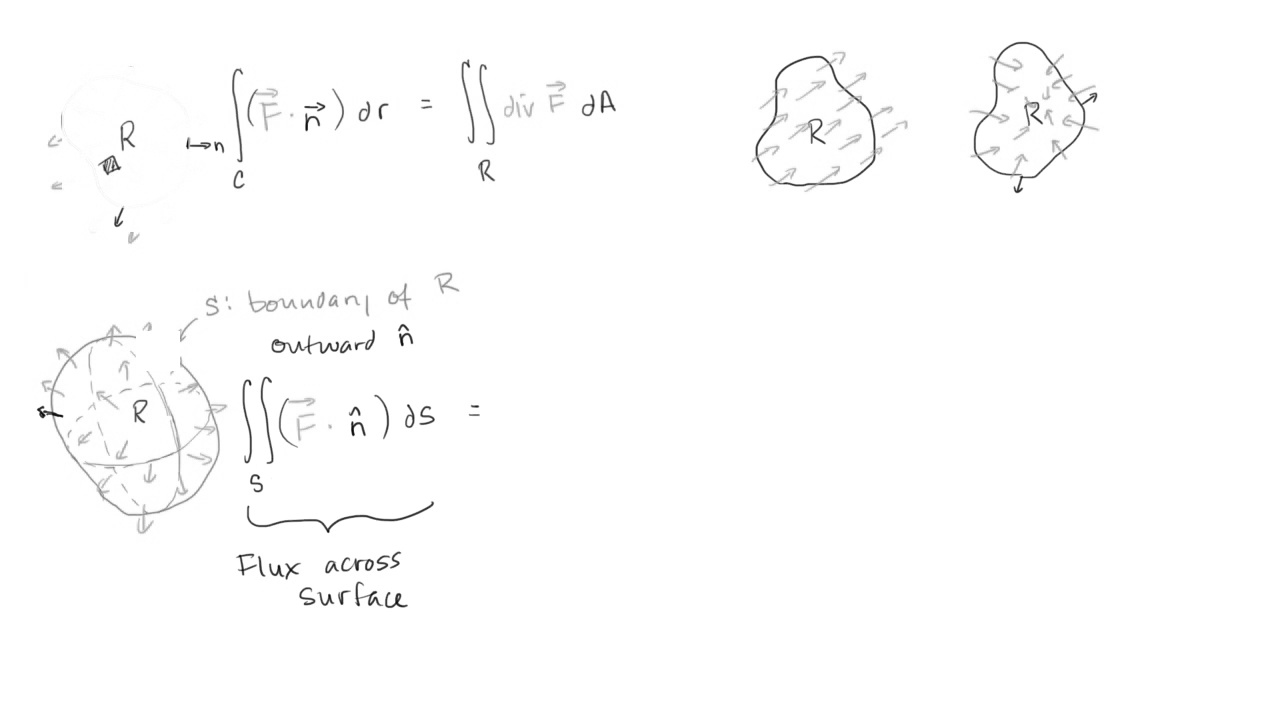 R
→n ∫_C (F⃗ · n⃗) dr = ∬_R div F⃗ dA
R
R
S: boundary of R
outward n̂
R
∬_S (F⃗ · n̂) dS =
Flux across
surface